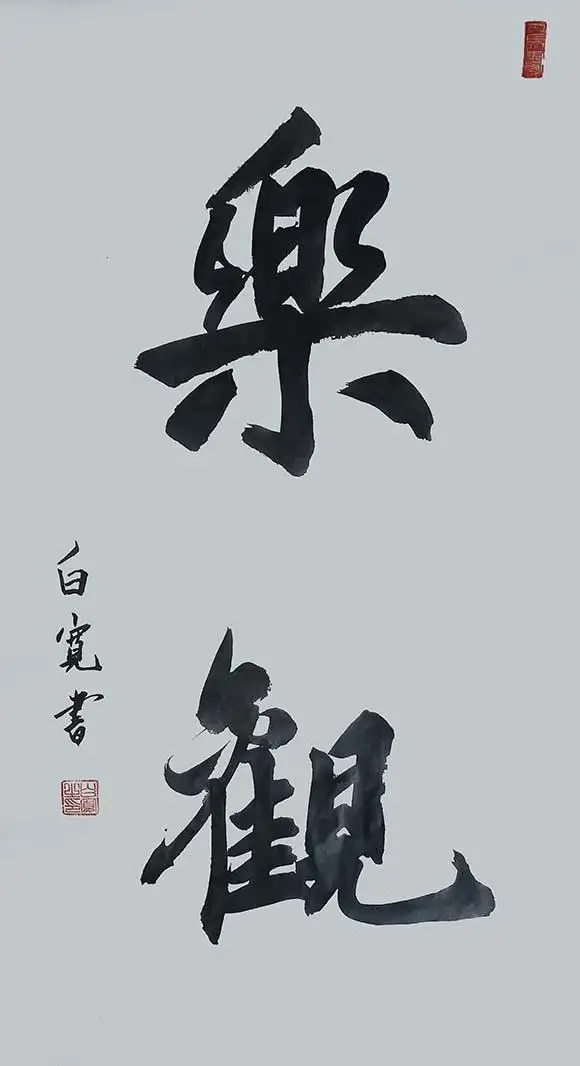 樂觀
白寬書